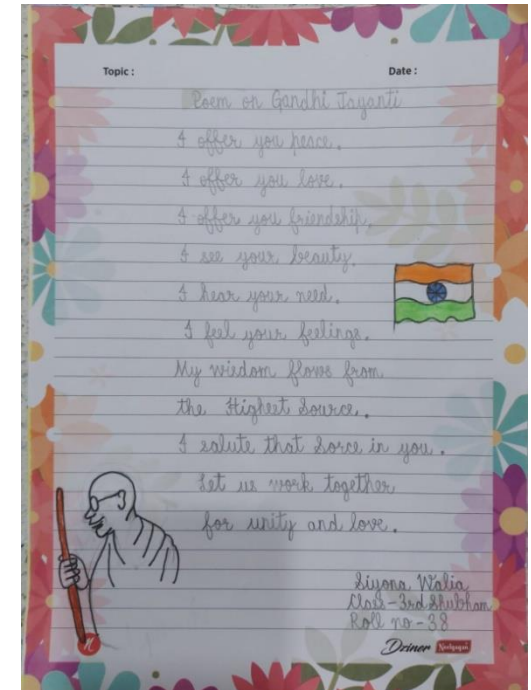 Topic :
Date :
Poem on Gandhi Jayanti
I offer you peace.
I offer you love.
I offer you friendship.
I see your beauty.
I hear your need.
I feel your feelings.
My wisdom flows from
the Highest Source.
I salute that Sorce in you.
Let us work together
for unity and love.
Siyona Walia
Class - 3rd Shubham
Roll no - 38
Dziner